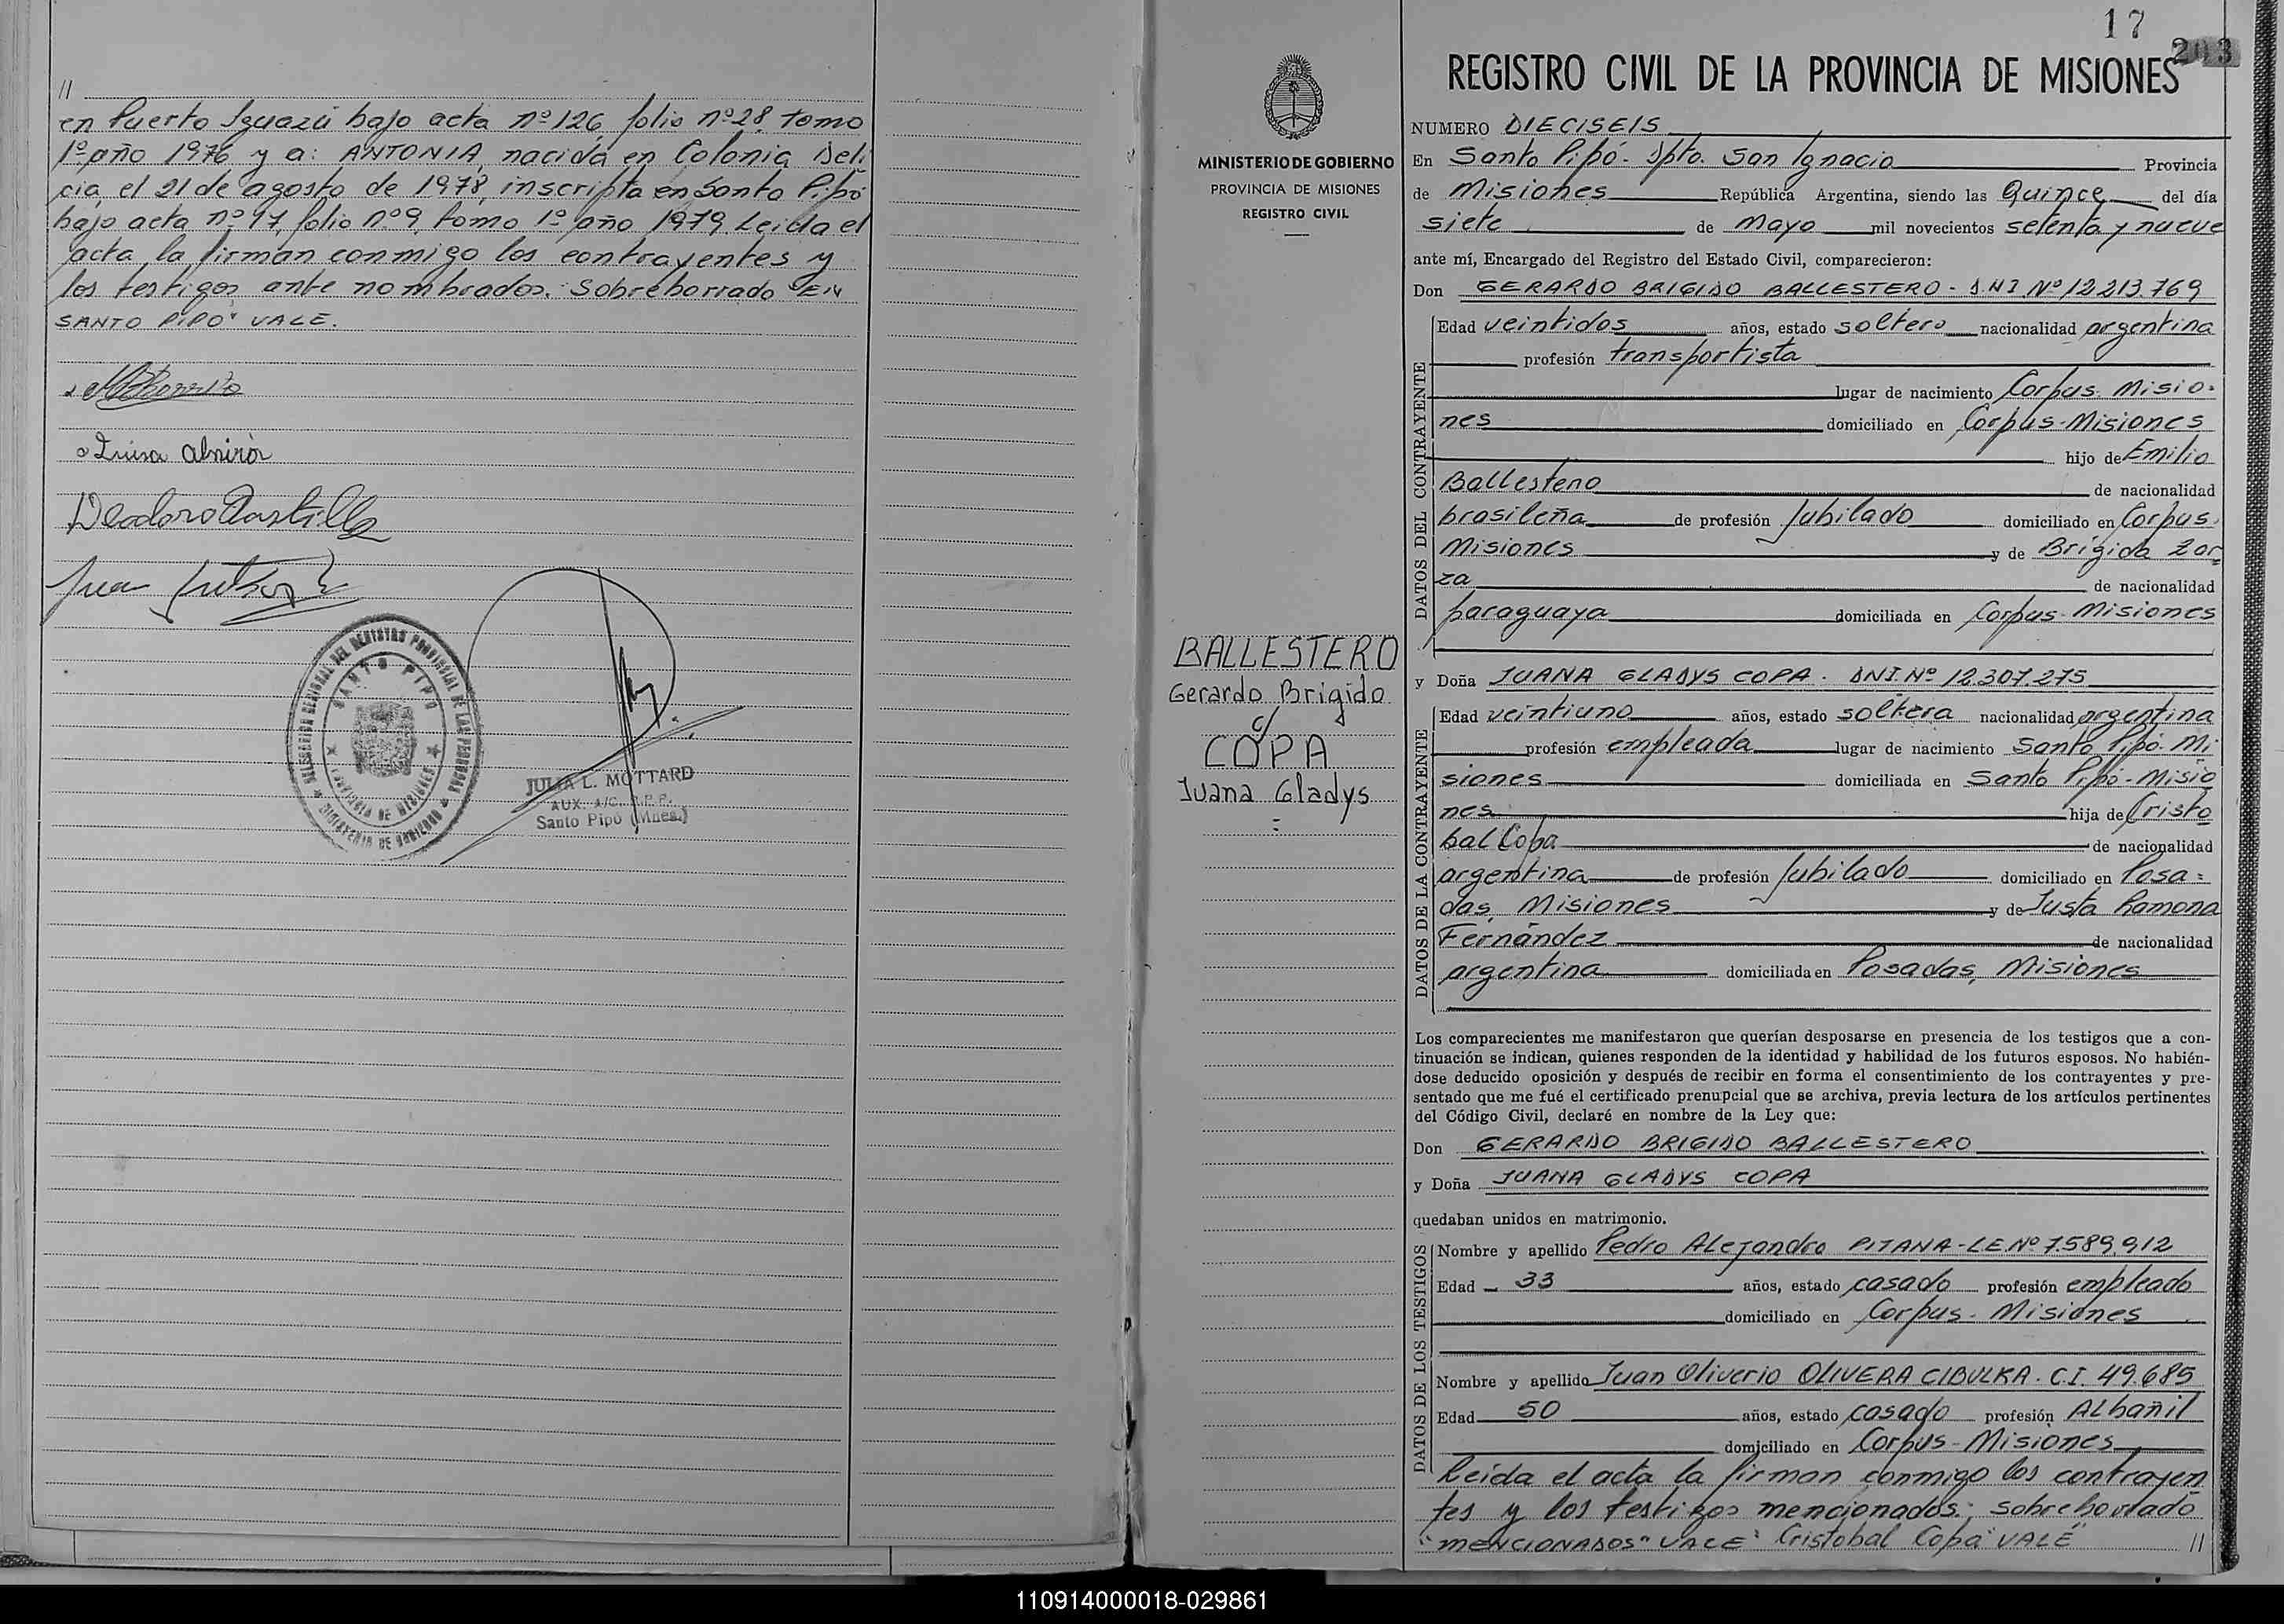 //
en Puerto Iguazú bajo acta nº 126, folio nº 28, tomo
1º año 1976 y a: ANTONIA, nacida en Colonia Deli
cia, el 21 de agosto de 1978, inscripta en Santo Pipó
bajo acta nº 17, folio nº 9, tomo 1º año 1979. Leida el
acta, la firman conmigo los contrayentes y
los testigos ante nombrados. Sobreborrado "EN
SANTO PIPO" VALE.
Luisa Almirón
Deodoro Castillo
Juan
DELEGACION SECCIONAL DEL REGISTRO PROVINCIAL DE LAS PERSONAS
SANTO PIPO
PROVINCIA DE MISIONES
MINISTERIO DE GOBIERNO
JULIA L. MOTTARD
AUX. A/C. R.P.P.
Santo Pipó (Mnes.)
MINISTERIO DE GOBIERNO
PROVINCIA DE MISIONES
REGISTRO CIVIL
BALLESTERO
Gerardo Brigido
c/
COPA
Juana Gladys
=
17
203
REGISTRO CIVIL DE LA PROVINCIA DE MISIONES
NUMERO DIECISEIS
En Santo Pipó- Dpto. San Ignacio Provincia
de Misiones República Argentina, siendo las Quince del día
siete de Mayo mil novecientos setenta y nueve
ante mí, Encargado del Registro del Estado Civil, comparecieron:
Don GERARDO BRIGIDO BALLESTERO - D.N.I. Nº 12.213.769
DATOS DEL CONTRAYENTE
Edad veintidos años, estado soltero nacionalidad argentina
profesión transportista
lugar de nacimiento Corpus- Misio-
nes domiciliado en Corpus-Misiones
hijo de Emilio
Ballestero de nacionalidad
brasileña de profesión Jubilado domiciliado en Corpus,
Misiones y de Brígida Zar
za de nacionalidad
paraguaya domiciliada en Corpus- Misiones
y Doña JUANA GLADYS COPA - DNI. Nº 12.307.275
DATOS DE LA CONTRAYENTE
Edad veintiuno años, estado soltera nacionalidad argentina
profesión empleada lugar de nacimiento Santo Pipó- Mi
siones domiciliada en Santo Pipó-Misio
nes hija de Cristo
bal Copa de nacionalidad
argentina de profesión Jubilado domiciliado en Posa=
das, Misiones y de Justa Ramona
Fernández de nacionalidad
argentina domiciliada en Posadas, Misiones
Los comparecientes me manifestaron que querían desposarse en presencia de los testigos que a con-
tinuación se indican, quienes responden de la identidad y habilidad de los futuros esposos. No habién-
dose deducido oposición y después de recibir en forma el consentimiento de los contrayentes y pre-
sentado que me fué el certificado prenupcial que se archiva, previa lectura de los artículos pertinentes
del Código Civil, declaré en nombre de la Ley que:
Don GERARDO BRIGIDO BALLESTERO
y Doña JUANA GLADYS COPA
quedaban unidos en matrimonio.
DATOS DE LOS TESTIGOS
Nombre y apellido Pedro Alejandro PITANA - L.E. Nº 7.589.912
Edad 33 años, estado casado profesión empleado
domiciliado en Corpus- Misiones
Nombre y apellido Juan Oliverio OLIVERA CIBULKA. C.I. 49.685
Edad 50 años, estado casado profesión Albañil
domiciliado en Corpus-Misiones
Leida el acta la firman conmigo los contrayen
tes y los testigos mencionados; sobreborrado
"MENCIONADOS" VALE " Cristobal Copa" VALE"
//
110914000018-029861